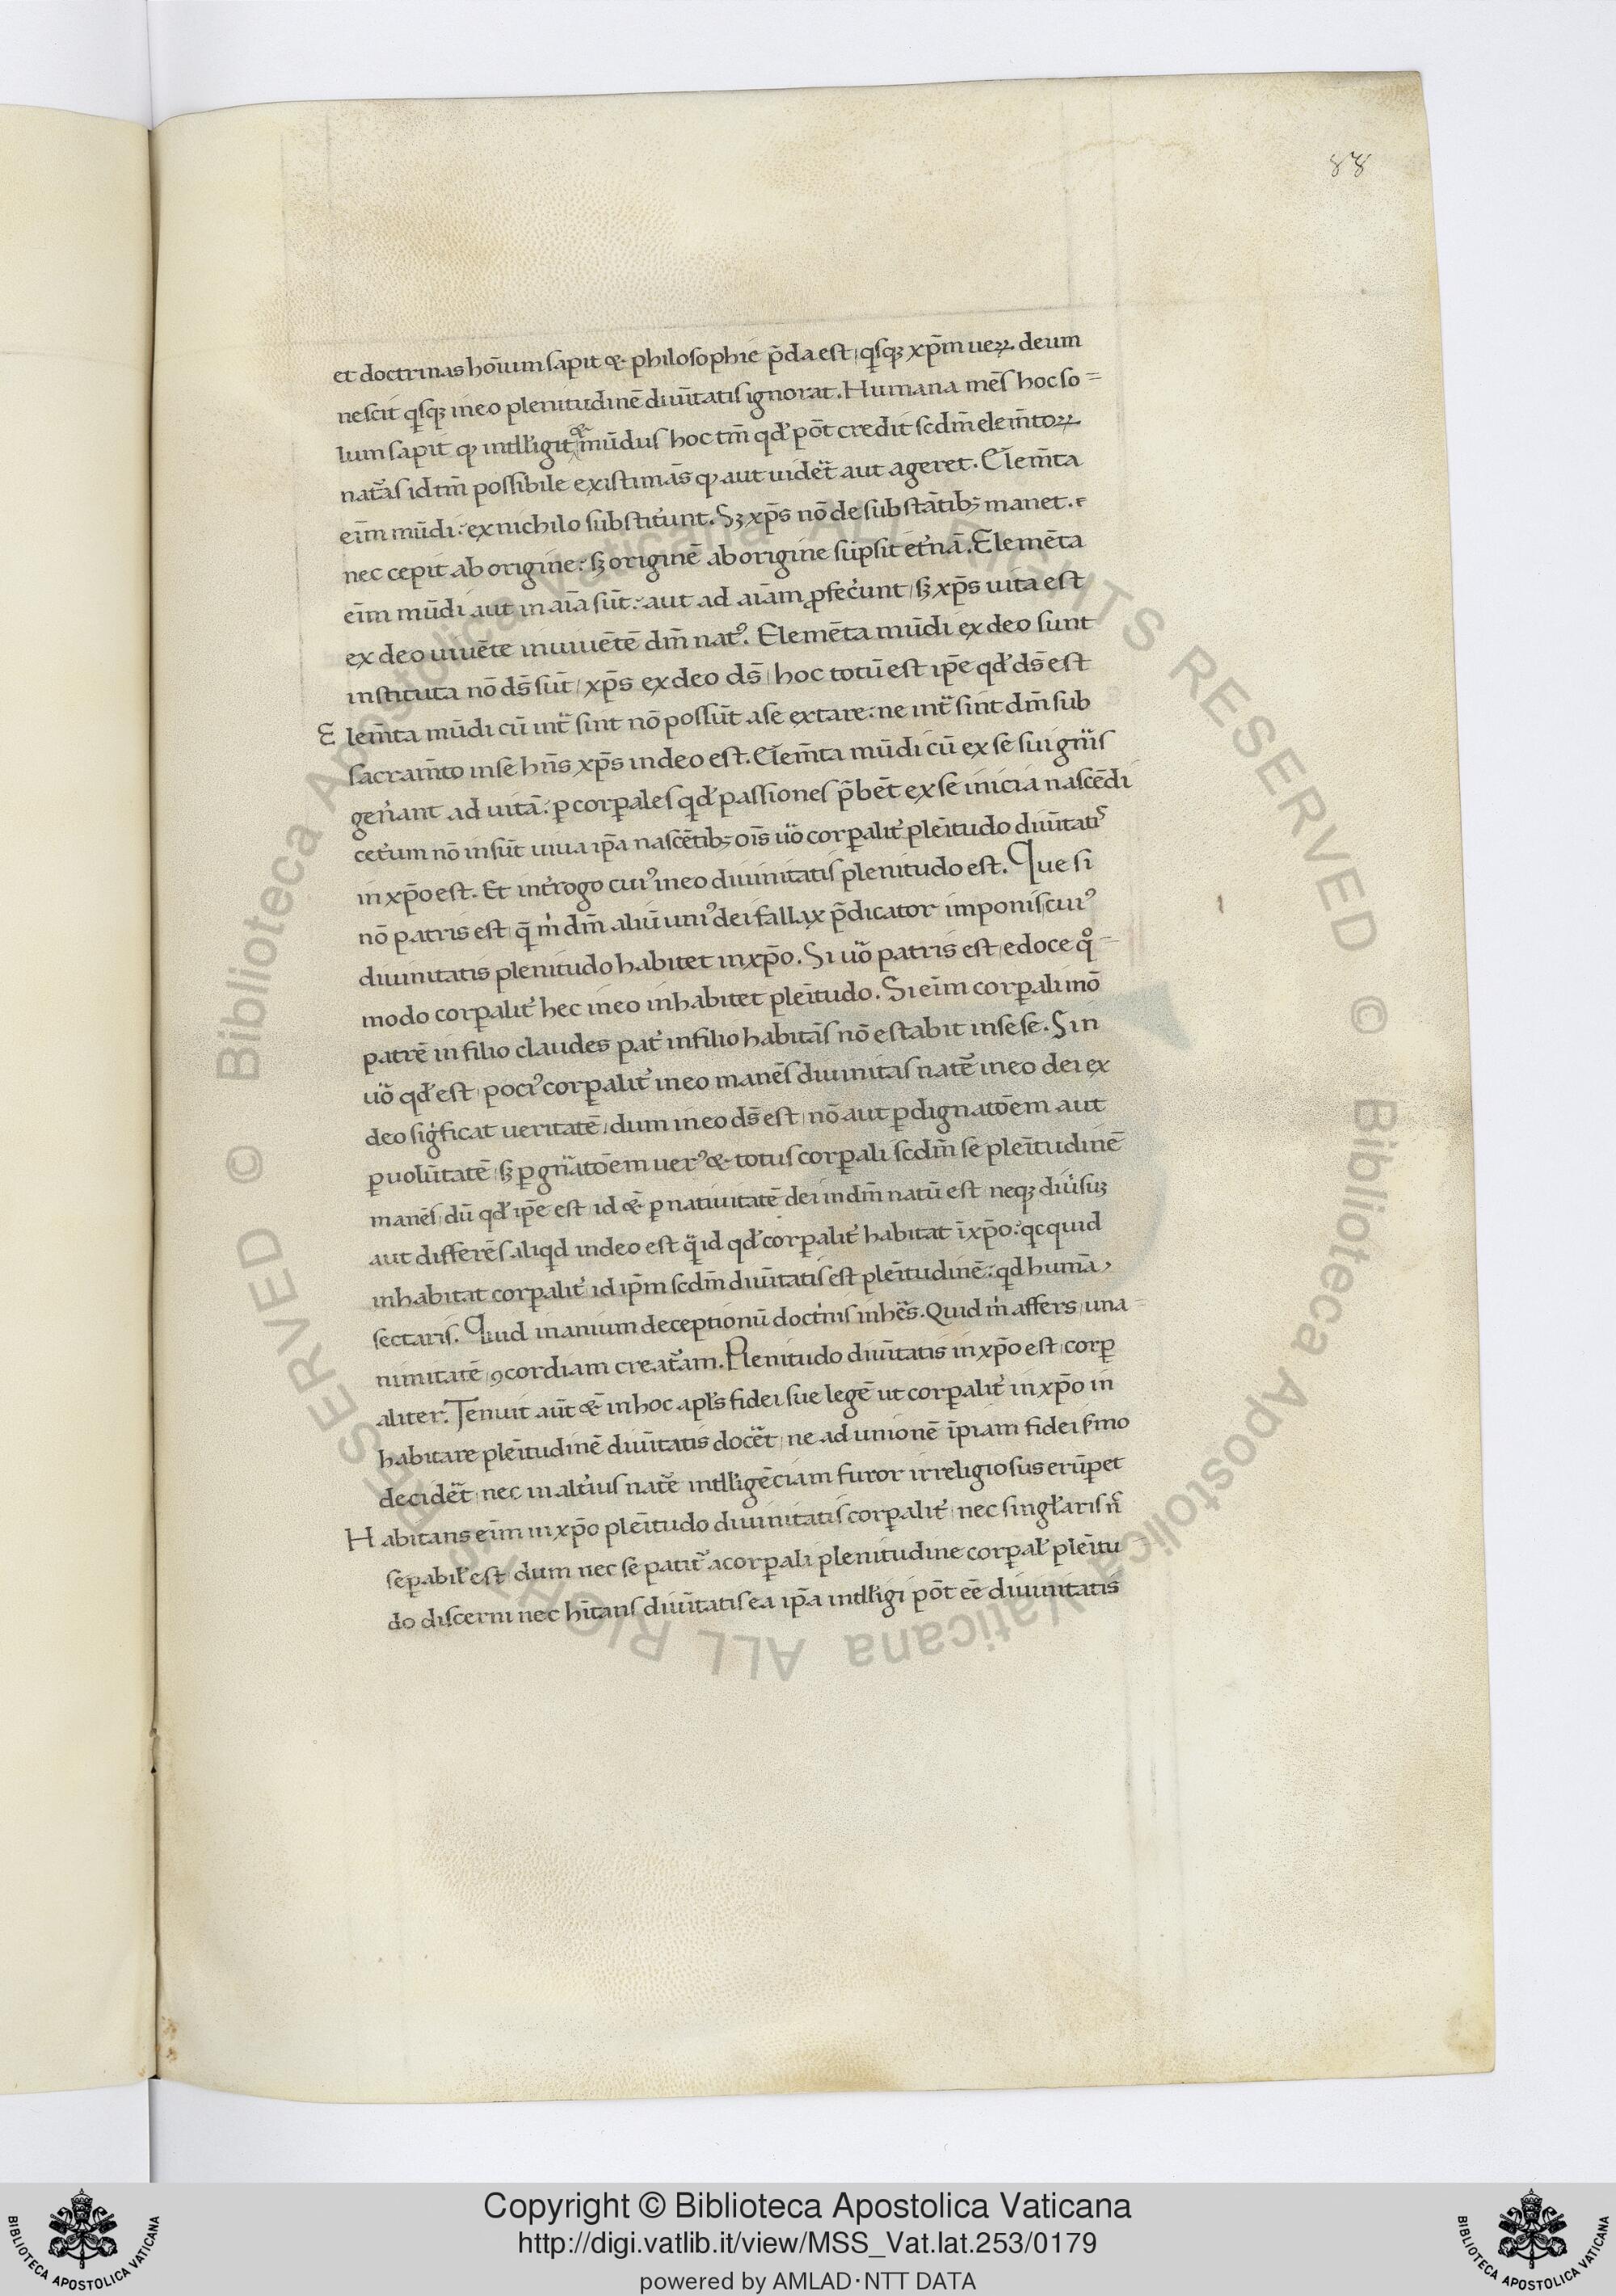 88
et doctrinas ho̅ium sapit & philosophie p̅da est qꝫsqꝫ xp̅m ueꝝ deum
nescit qꝫsqꝫ in eo plenitudine̅ diui̅tatis ignorat. Humana me̅s hoc so=
lum sapit qꝫ intll'igit & mu̅dus hoc tm̅ qd' po̅t credit scdm̅ elem̅toꝝ
nat̅as id tm̅ possibile existima̅s qꝫ aut uidet̅ aut ageret. Elem̅ta
ei̅m mu̅di: ex nichilo substit'unt. Sꝫ xp̅s no̅ de substa̅tibꝫ manet.
nec cepit ab origine: sꝫ origine̅ ab origine su̅psit et'na̅. Eleme̅ta
ei̅m mu̅di aut in ai̅a su̅t: aut ad ai̅am ꝓfec'unt sꝫ xp̅s uita est
ex deo uiue̅te in uiue̅te̅ dm̅ natꝰ. Eleme̅ta mu̅di ex deo sunt
instituta no̅ ds̅ su̅t xp̅s ex deo ds̅ hoc totu̅ est ip̅e qd' ds̅ est
Elem̅ta mu̅di cu̅ int̅ sint no̅ possu̅t a se extare: ne int̅ sint dm̅ sub
sacram̅to in se hn̅s xp̅s in deo est. Elem̅ta mu̅di cu̅ ex se sui gn̅is
gen'ant ad uita̅: ꝑ corꝑales qd' passiones p̅be̅t ex se inicia nasce̅di
cet'um no̅ insu̅t uiua ip̅a nasce̅tibꝫ oi̅s uo̅ corꝑalit' plei̅tudo diui̅tatis
in xp̅o est. Et int'rogo cuiꝰ in eo diuinitatis plenitudo est. Que si
no̅ patris est q̅ m' dm̅ aliu̅ uniꝰ dei fallax p̅dicator imponis cuiꝰ
diuinitatis plenitudo habitet in xp̅o. Si uo̅ patris est edoce qo
modo corꝑalit' hec in eo inhabitet plei̅tudo. Si ei̅m corꝑali mo̅
patre̅ in filio claudes pat' in filio habita̅s no̅ estabit in sese. Sin
uo̅ qd' est pociꝰ corꝑalit' in eo mane̅s diuinitas nat̅e in eo dei ex
deo sig'ficat ueritate̅ dum in eo ds̅ est no̅ aut ꝑ dignato̅em aut
ꝑ uolu̅tate̅ sꝫ ꝑ gn̅ato̅em uerꝰ & totus corꝑali scdm̅ se plei̅tudine̅
mane̅s du̅ qd' ip̅e est id &̅ ꝑ natiuitate̅ dei in dm̅ natu̅ est neqꝫ diu'suꝫ
aut differe̅s aliqd in deo est q̅ id qd' corꝑalit' habitat i̅ xp̅o: qcquid
inhabitat corꝑalit' id ip̅m scdm̅ diui̅tatis est plei̅tudine̅: qd huma̅
sectaris. Quid inanium deceptionu̅ doct'nis inhe̅s. Quid m' affers una=
nimitate̅ ꝯcordiam creat̅am. Plenitudo diui̅tatis in xp̅o est corꝑ
aliter. Tenuit au̅t &̅ in hoc apl's fidei sue lege̅ ut corꝑalit' in xp̅o in
habitare plei̅tudine̅ diui̅tatis doce̅t ne ad unione̅ i̅piam fidei s'mo
decide̅t nec in alt'ius nat̅e intll'ige̅ciam furor irreligiosus eru̅pet
Habitans ei̅m in xp̅o plei̅tudo diuinitatis corꝑalit' nec singl'aris n̅
seꝑabil' est dum nec se patit̅ a corꝑali plenitudine corꝑal' plei̅tu
do discerni nec hi̅tans diui̅tatis ea ip̅a intll'igi po̅t ee̅ diuinitatis
Copyright © Biblioteca Apostolica Vaticana
http://digi.vatlib.it/view/MSS_Vat.lat.253/0179
powered by AMLAD·NTT DATA